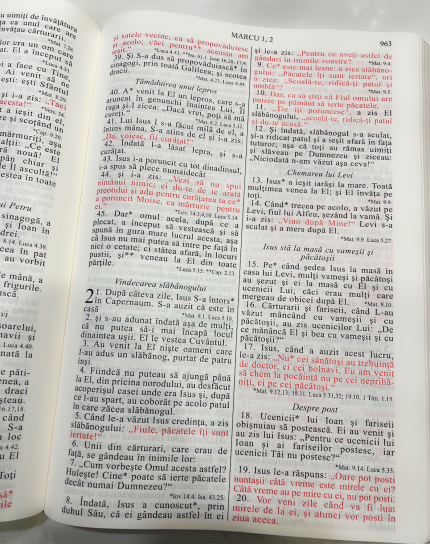 MARCU 1, 2
963
și satele vecine, ca să propovăduiesc
și acolo; căci pentru* aceasta am
39. Și S-a dus propovăduiască*
sinagogi, prin toată Galileea; și scotea
dracii.
Tămăduirea unui lepros
40. A* venit la El un lepros, care s-a
aruncat în genunchi înaintea Lui, Îl
ruga și-I zicea: „Dacă vrei, poți să mă
curețí."
41. Lui Isus I s-a făcut milă de el, a
întins mâna, S-a atins de el și i-a zis:
„Da, voiesc, fii curățat!"
42. Îndată l-a lăsat lepra, și s-a
curățat.
43. Isus i-a poruncit cu tot dinadinsul,
i-a spus să plece numaidecât
44. și i-a zis: „Vezi să nu spui
nimănui nimic; ci du-te de te arată
preotului și adu pentru curățarea ta ce*
a poruncit Moise, ca mărturie pentru
ei."
*Lev. 14.3,4,10. Luca 5.14.
45. Dar* omul acela, după ce a
plecat, a început să vestească și să
spună în gura mare lucrul acesta, așa
că Isus nu mai putea să intre pe față în
nici o cetate; ci stătea afară, în locuri
pustii, și** veneau la El din toate
părțile.
*Luca 5.15. **Cap. 2.13.
Vindecarea slăbănogului
2 1. După câteva zile, Isus S-a întors*
în Capernaum. S-a auzit că este în
casă
*Mat. 9.1. Luca 5.18.
2. și s-au adunat îndată așa de mulți,
că nu putea să-i mai încapă locul
dinaintea ușii. El le vestea Cuvântul.
3. Au venit la El niște oameni care
I-au adus un slăbănog, purtat de patru
inși.
4. Fiindcă nu puteau să ajungă până
la El, din pricina norodului, au desfăcut
acoperișul casei unde era Isus și, după
ce l-au spart, au coborât pe acolo patul
în care zăcea slăbănogul.
5. Când le-a văzut Isus credința, a zis
slăbănogului: „Fiule, păcatele îți sunt
iertate!"
6. Unii din cărturari, care erau de
față, se gândeau în inimile lor:
7. „Cum vorbește Omul acesta astfel?
Hulește! Cine* poate să ierte păcatele
decât numai Dumnezeu?"
*Iov 14.4. Isa. 43.25.
8. Îndată, Isus a cunoscut*, prin
duhul Său, că ei gândeau astfel în ei
și le-a zis: „Pentru ce aveți astfel de
gânduri în inimile voastre?
*Mat. 9.4.
9. Ce* este mai lesne: a zice slăbăno-
gului: „Păcatele îți sunt iertate", ori
a zice: „Scoală-te, ridică-ți patul și
umblă"?
*Mat. 9.5.
10. Dar, ca să știți că Fiul omului are
putere pe pământ să ierte păcatele,
11. „Ție îți poruncesc", a zis El
slăbănogului, „scoală-te, ridică-ți patul
și du-te acasă."
12. Și îndată, slăbănogul s-a sculat,
și-a ridicat patul și a ieșit afară în fața
tuturor; așa că toți au rămas uimiți
și slăveau pe Dumnezeu și ziceau:
„Niciodată n-am văzut așa ceva!"
Chemarea lui Levi
13. Isus* a ieșit iarăși la mare. Toată
mulțimea venea la El; și El învăța pe
toți.
*Mat. 9.9.
14. Când* trecea pe acolo, a văzut pe
Levi, fiul lui Alfeu, șezând la vamă. Și
i-a zis: „Vino după Mine!" Levi s-a
sculat și a mers după El.
*Mat. 9.9. Luca 5.27.
Isus stă la masă cu vameșii și
păcătoșii
15. Pe* când ședea Isus la masă în
casa lui Levi, mulți vameși și păcătoși
au șezut și ei la masă cu El și cu
ucenicii Lui; căci erau mulți care
mergeau de obicei după El.
*Mat. 9.10.
16. Cărturarii și fariseii, când L-au
văzut mâncând cu vameșii și cu
păcătoșii, au zis ucenicilor Lui: „De
ce mănâncă El și bea cu vameșii și cu
păcătoșii?"
17. Isus, când a auzit acest lucru,
le-a zis: „Nu* cei sănătoși au trebuință
de doctor, ci cei bolnavi. Eu am venit
să chem la pocăință nu pe cei neprihă-
niți, ci pe cei păcătoși."
*Mat. 9.12,13; 18.11. Luca 5.31,32; 19.10. 1 Tim. 1.15
Despre post
18. Ucenicii* lui Ioan și fariseii
obișnuiau să postească. Ei au venit și
au zis lui Isus: „Pentru ce ucenicii lui
Ioan și ai fariseilor postesc, iar
ucenicii Tăi nu postesc?"
*Mat. 9.14. Luca 5.33.
19. Isus le-a răspuns: „Oare pot posti
nuntașii câtă vreme este mirele cu ei?
Câtă vreme au pe mire cu ei, nu pot posti.
20. Vor veni zile când va fi luat
mirele de la ei, și atunci vor posti în
ziua aceea.